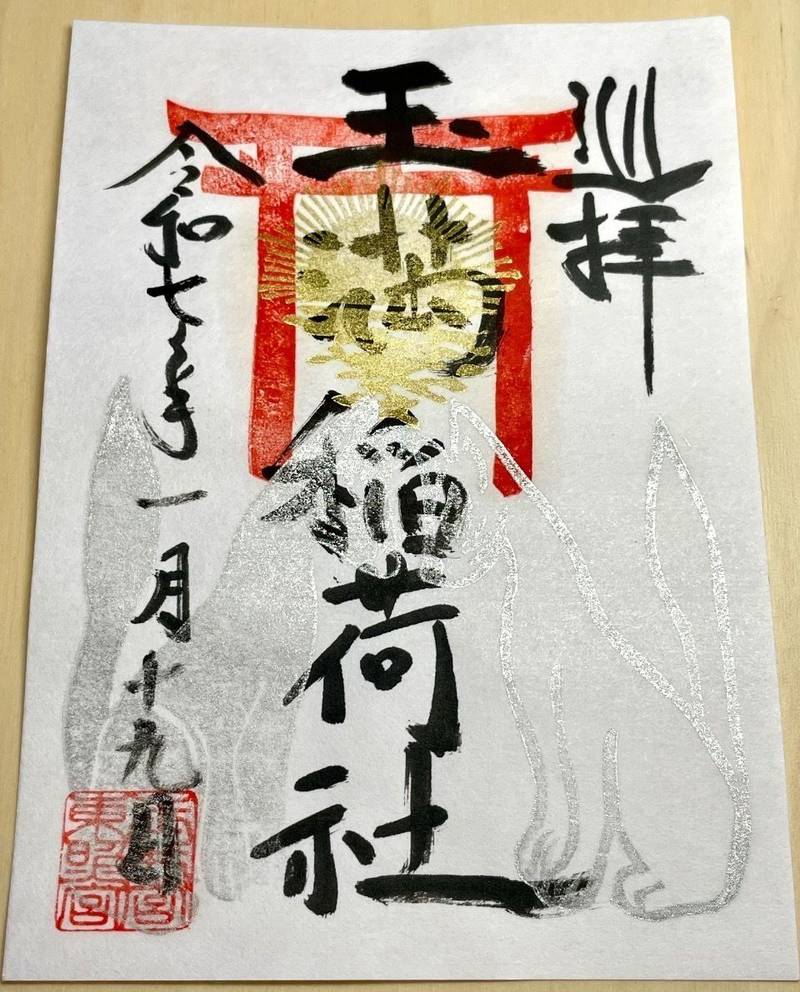 巡拝
玉満稲荷社
令和七年一月十九日